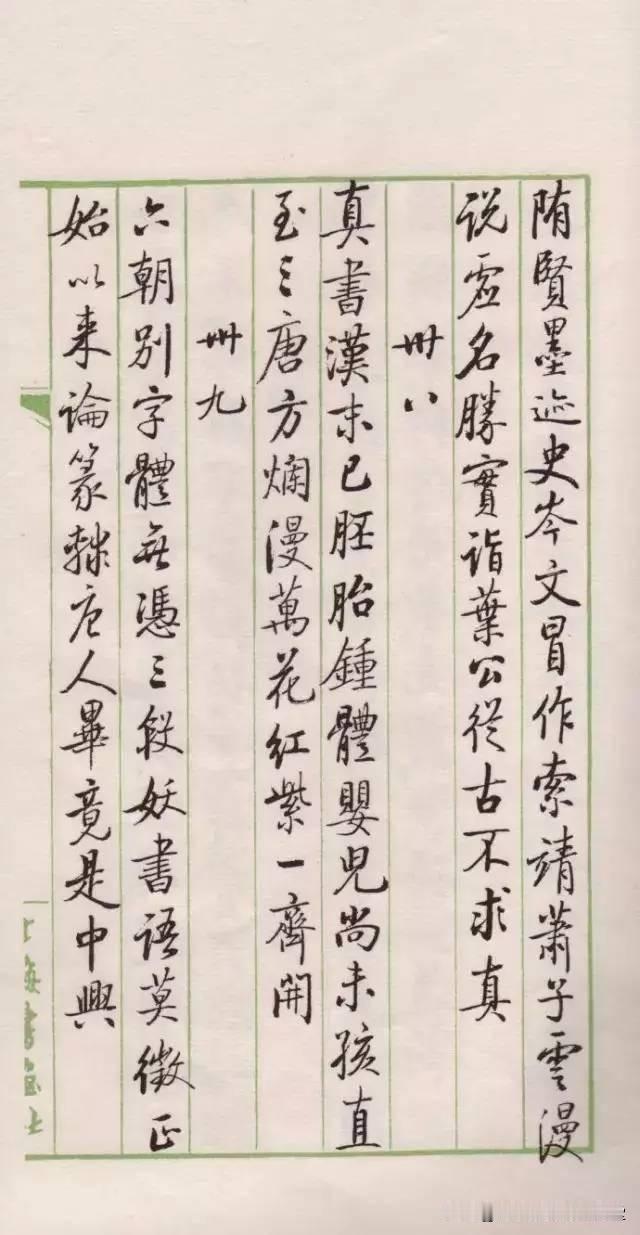 隋賢墨迹史岑文冒作索靖蕭子雲漫
说虚名勝實詣葉公從古不求真
卅八
真書漢末已胚胎鍾體嬰兒尚未孩直
至三唐方爛漫萬花紅紫一齊開
卅九
六朝别字體無憑三段妖書語莫徵正
始以来論篆隸唐人畢竟是中興
上海書畫社